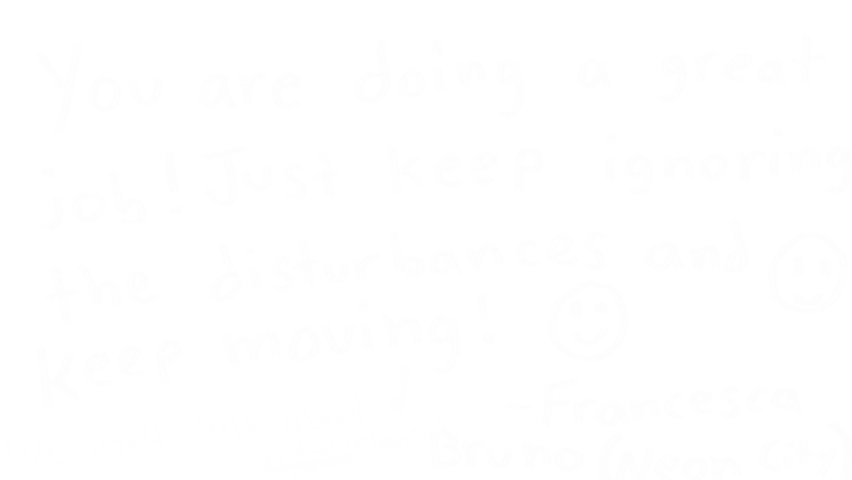 You are doing a great
job! Just keep ignoring
the disturbances and
keep moving!
-Francesca
Bruno (Neon City)